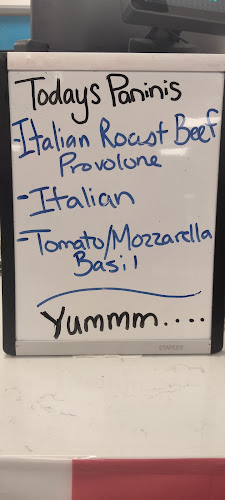 Todays Paninis
-Italian Roast Beef
Provolone
-Italian
-Tomato/Mozzarella
Basil
Yummm....
STAPLES